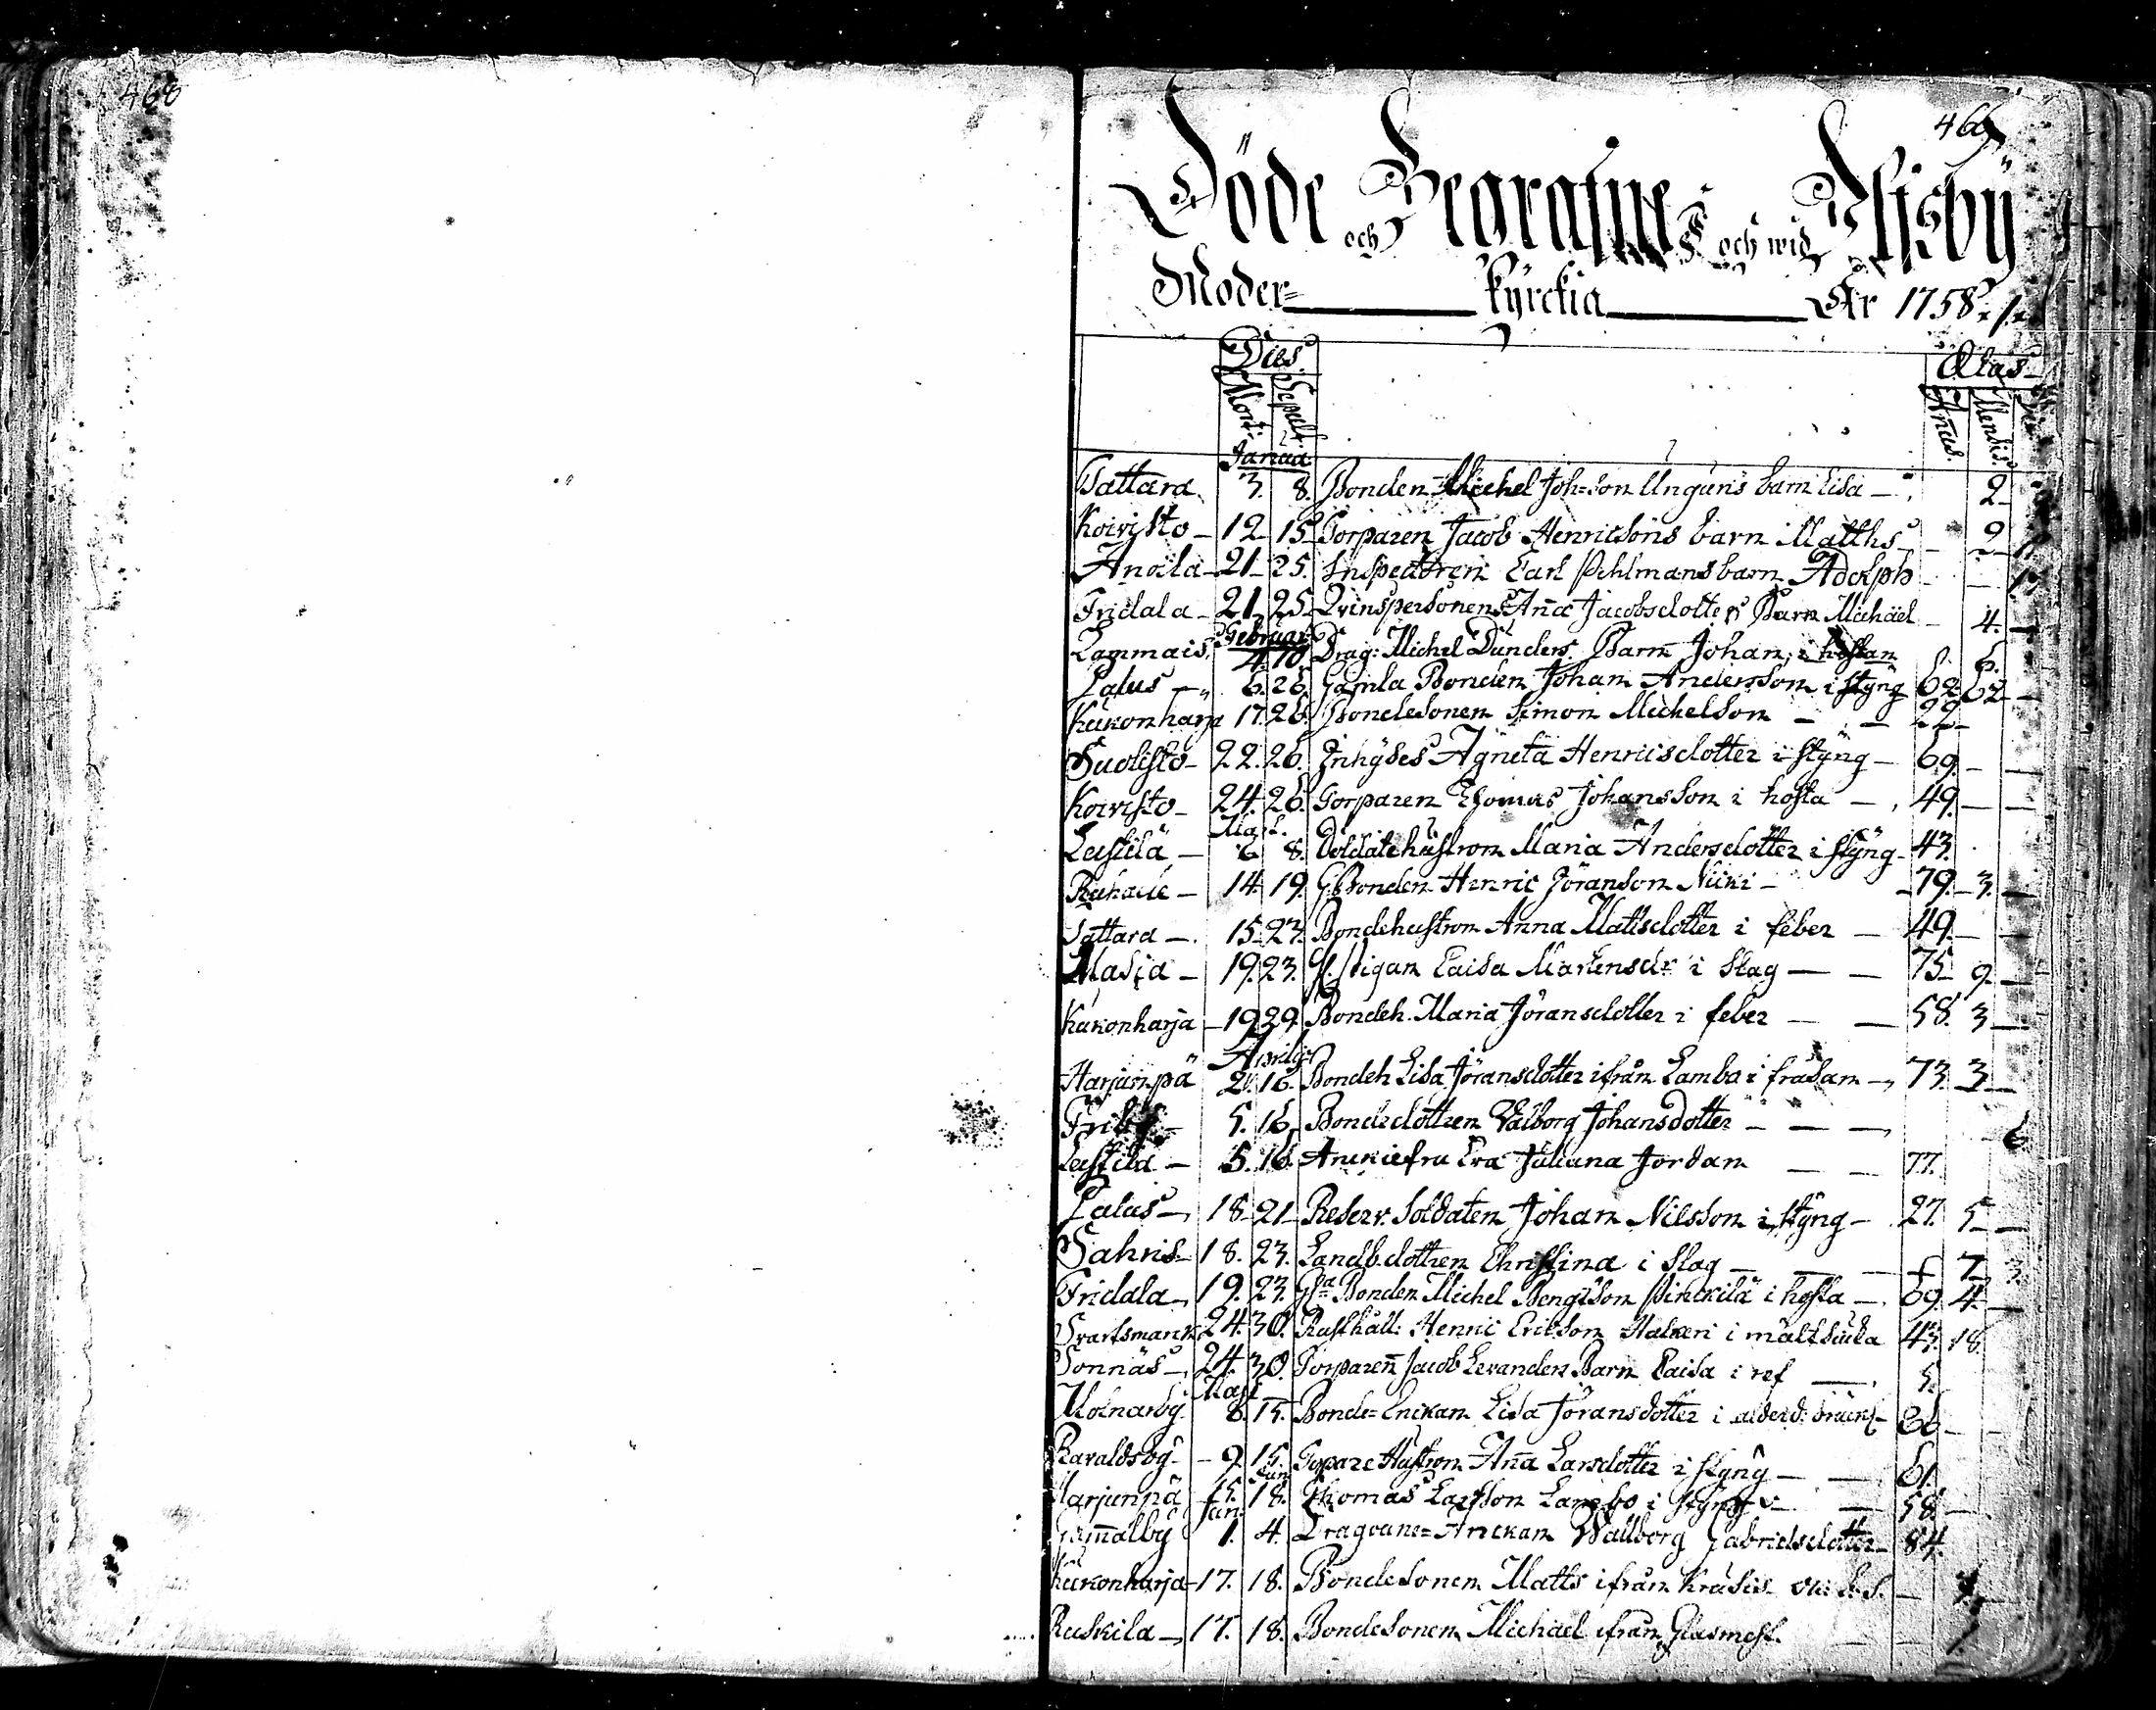 468
469
Döde och Begrafne i och wid Ulfsby
Moder= kyrckia År 1758.
Dies. Ætas
Mort: Sepult: Annus. Mensis.
Januar:
Tattara 3. 8. Bonden Michel Joh=son Unguns barn Lisa 2
Koivisto 12 15 Torparen Jacob Henricsons barn Matths 9
Anola 21 25. Inspectoren Carl Pihlmans barn Adolph
Fridala 21. 25 Qvinspersonens Aña Jacobsdotters Barn Michael 4.
Februar:
Lammais 4. 10. Drag: Michel Dunders Barn Johan, i hostan 6.
Palus 6. 26. Gamla Bonden Johan Andersson i styng 62
Kukonharja 17. 26. Bondesonen Simon Michelson 22
Suolisto 22. 26. Inhyses Agneta Henricsdotter i styng 69.
Koivisto 24. 26. Torparen Thomas Johansson i hosta 49.
Mart.
Leistilä 6 8. Soldatehustron Maria Andersdotter i styng 43.
14. 19. G. Bonden Henric Jöranson 79. 3.
Tattara 15. 23. Bondehustron Anna Matsdotter i feber 49.
Masia 19. 23. Pigan Caisa Mårtensdr i slag 75 9
Kukonharja 19 29. Bondeh. Maria Jöransdotter i feber 58. 3
Aprilis
Harjunpä 2. 16. Bondeh. Lisa Jöransdotter ifrån Lamba i fråsan 73. 3
Friby 5. 16. Bondedottren Valborg Johansdotter 6
Leistila 5. 16. Anckiefru Eva Juliana Jordan 77.
Palus 18. 21 Reserv. Soldaten Johan Nilsson i styng 27. 5
Sahris 18. 23. Landb.dottren Christina i slag 7
Fridala 19. 23. Gla Bonden Michel Bengtson i hosta 69. 4.
Svartsmark 24. 30. Rusthåll: Henric Ericson i mältsiuka 43. 18.
Sonnäs 24. 30. Torpareñ Jacob Levanders Barn Caisa i ref 5.
Maji
Molnarby 8. 15. Bonde=Enckan Lisa Jöransdotter i
Ravaldsby 9. 15. Torpare Hustron Aña Larsdotter i styng 61.
Jun
Harjunpä 15. 18. Thomas Larsson Lambo i styng 58.
Jun:
Gamalby 1. 4. Dragoune=Anckan Wallborg Gabrielsdotter 84.
Kukonharja 17. 18. Bondesonen Matts ifrån
Ruskila 17. 18. Bondesonen Michael ifrån Glasmest.